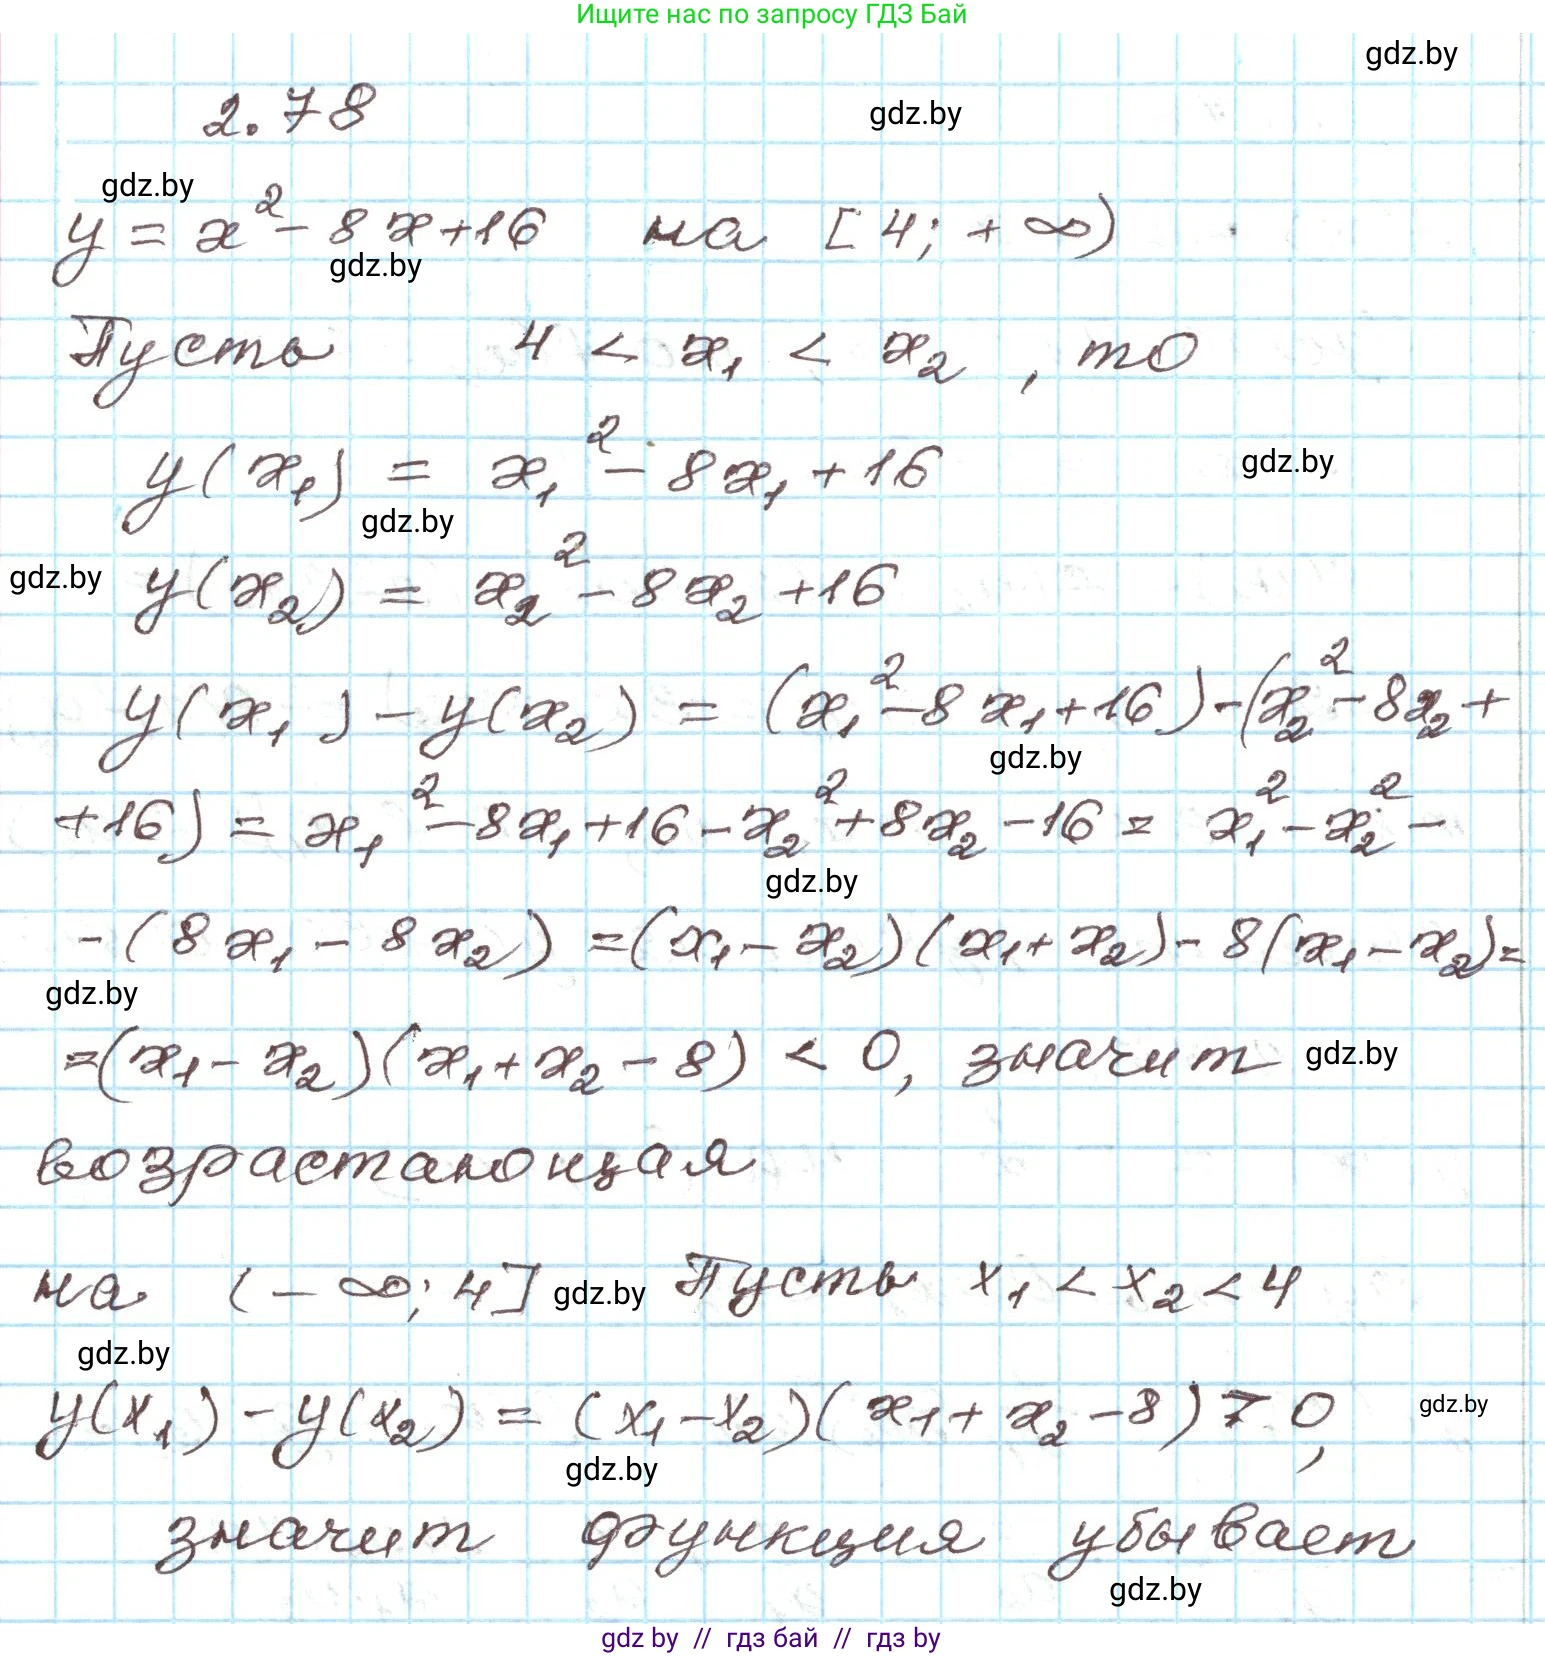 Ищите нас по запросу ГДЗ Бай
gdz.by
2.78
gdz.by
gdz.by
y = x² - 8x + 16 на [4; +∞)
gdz.by
Пусть 4 < x₁ < x₂, то
y(x₁) = x₁² - 8x₁ + 16
gdz.by
gdz.by
gdz.by
y(x₂) = x₂² - 8x₂ + 16
y(x₁) - y(x₂) = (x₁² - 8x₁ + 16) - (x₂² - 8x₂ +
gdz.by
+16) = x₁² - 8x₁ + 16 - x₂² + 8x₂ - 16 = x₁² - x₂² -
gdz.by
- (8x₁ - 8x₂) = (x₁ - x₂)(x₁ + x₂) - 8(x₁ - x₂) =
gdz.by
= (x₁ - x₂)(x₁ + x₂ - 8) < 0, значит
gdz.by
возрастающая
на (-∞; 4] gdz.by Пусть x₁ < x₂ < 4
gdz.by
y(x₁) - y(x₂) = (x₁ - x₂)(x₁ + x₂ - 8) > 0,
gdz.by
gdz.by
значит функция убывает
gdz.by
gdz by // гдз бай // гдз by